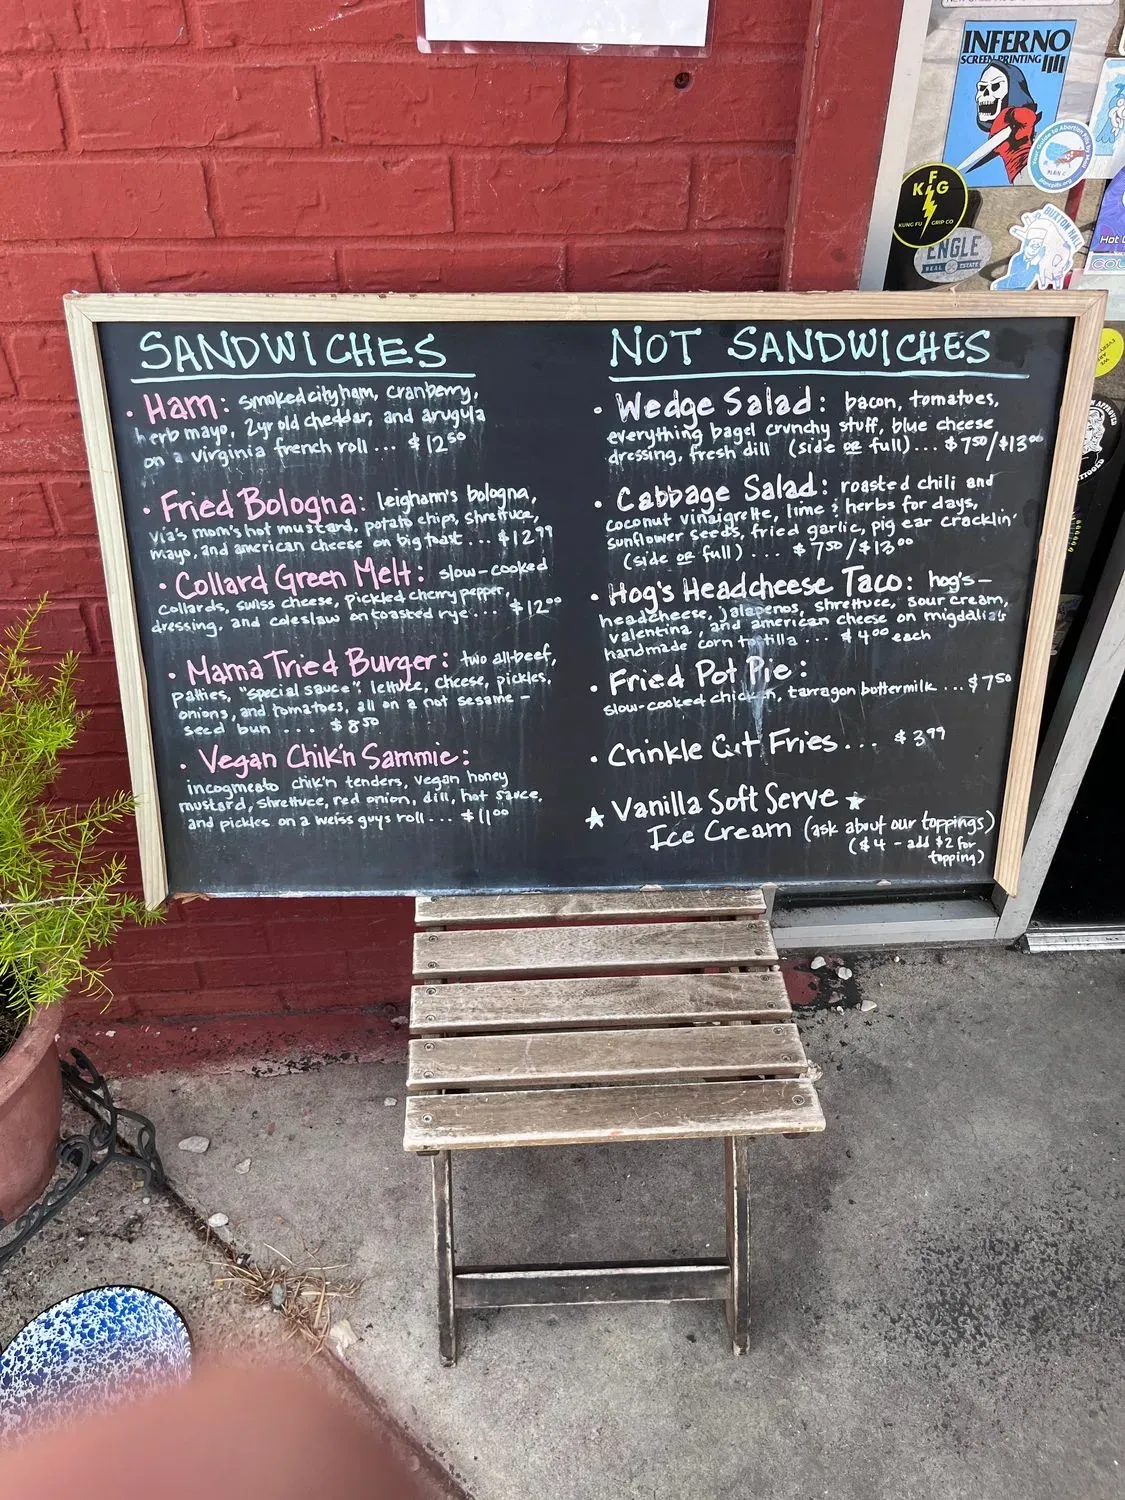 SANDWICHES
• Ham: smoked city ham, cranberry,
herb mayo, 2yr old cheddar, and arugula
on a virginia french roll ... $12⁵⁰
• Fried Bologna: leighann's bologna,
via's mom's hot mustard, potato chips, shrettuce,
mayo, and american cheese on big toast ... $12⁹⁹
• Collard Green Melt: slow-cooked
collards, swiss cheese, pickled cherry pepper,
dressing, and coleslaw on toasted rye ... $12⁰⁰
• Mama Tried Burger: two all-beef,
patties, "special sauce", lettuce, cheese, pickles,
onions, and tomatoes, all on a not sesame-
seed bun .... $8⁵⁰
• Vegan Chik'n Sammie:
incogmeato chik'n tenders, vegan honey
mustard, shrettuce, red onion, dill, hot sauce,
and pickles on a weiss guys roll ... $11⁰⁰
NOT SANDWICHES
• Wedge Salad: bacon, tomatoes,
everything bagel crunchy stuff, blue cheese
dressing, fresh dill (side or full) ... $7⁵⁰/$13⁰⁰
• Cabbage Salad: roasted chili and
coconut vinaigrette, lime & herbs for days,
sunflower seeds, fried garlic, pig ear cracklin'
(side or full) .... $7⁵⁰/$13⁰⁰
• Hog's Headcheese Taco: hog's-
headcheese, jalapenos, shrettuce, sour cream,
valentina, and american cheese on migdalia's
handmade corn tortilla ... $4⁰⁰ each
• Fried Pot Pie:
slow-cooked chicken, tarragon buttermilk ... $7⁵⁰
• Crinkle Cut Fries ... $3⁹⁹
★ Vanilla Soft Serve ★
Ice Cream (ask about our toppings)
($4 - add $2 for
topping)
INFERNO
SCREEN PRINTING
PLAN C
plancpills.org
KFG
KUNG FU GRIP CO
ENGLE
REAL ESTATE
BUXTON HALL